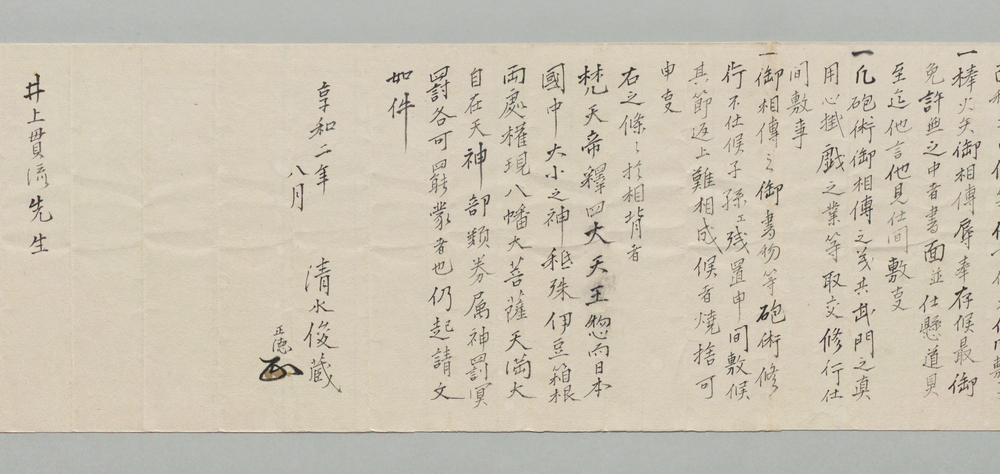 一棒火矢御相傳辱奉存候最御
免許無之中者書面並仕懸道具
至迄他言他見仕間敷㕝
一凡砲術御相傳之義共武門之真
用心掛戯之業等取交修行仕
間敷事
一御相傳之御書物等砲術修
行不仕候子孫江残置申間敷候
其節返上難相成候者焼捨可
申㕝
右之條々於相背者
梵天帝釋四大天王惣而日本
國中大小之神祇殊伊豆箱根
両處権現八幡大菩薩天満大
自在天神部類眷属神罰冥
罰各可罷蒙者也仍起請文
如件
享和二年
八月
清水俊蔵
正徳
井上貫流先生